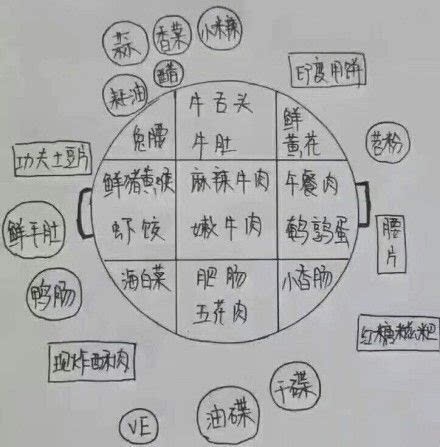 蒜
香菜
小米辣
耗油
醋
印度甩饼
牛舌头
牛肚
兔腰
鲜
黄花
苕粉
功夫土豆片
鲜猪黄喉
虾饺
麻辣牛肉
嫩牛肉
午餐肉
鹌鹑蛋
鲜毛肚
鸭肠
腰
片
海白菜
肥肠
五花肉
小香肠
现炸酥肉
红糖糍粑
VE
油碟
干碟